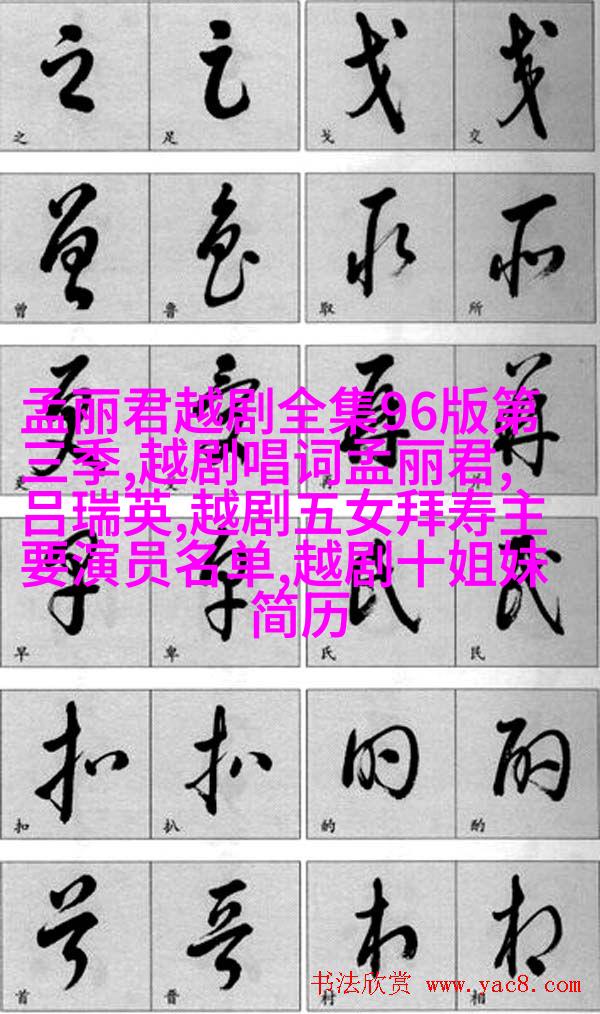 之 足 戈 交
曾 鲁 取 所
孟丽君越剧全集96版第
三季,越剧唱词孟丽君,
吕瑞英,越剧五女拜寿主
要演员名单,越剧十姐妹
简历
早 卑 氏 民
扣 扒 的 酌
首 晋 村 相
书法欣赏 www.yac8.com